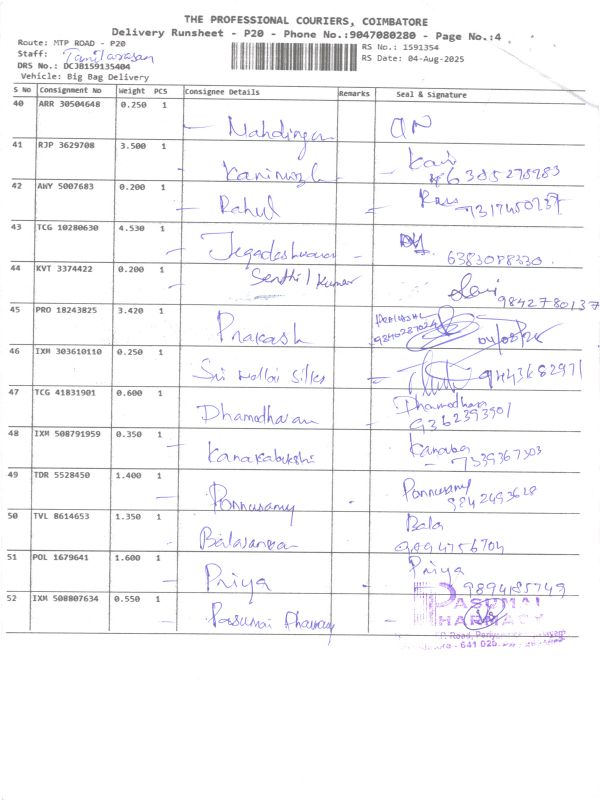 THE PROFESSIONAL COURIERS, COIMBATORE
Delivery Runsheet - P20 - Phone No.:9047080280 - Page No.:4
Route: MTP ROAD - P20
RS No.: 1591354
Staff: Tamilarasan
RS Date: 04-Aug-2025
DRS No.: DCJB159135404
Vehicle: Big Bag Delivery
S No Consignment No Weight PCS Consignee Details Remarks Seal & Signature
40 ARR 30504648 0.250 1
41 RJP 3629708 3.500 1
6385278983
42 AWY 5007683 0.200 1 Rahul
43 TCG 10280630 4.530 1 Jegadeshwaran
6383088330
44 KVT 3374422 0.200 1 Senthil Kumar
9842780137
45 PRO 18243825 3.420 1 Prakash
9840287024
46 IXM 303610110 0.250 1 Sri Silks
9443682971
47 TCG 41831901 0.600 1 Dhamodharan Dhamodharan
9362393901
48 IXM 508791959 0.350 1
7339367303
49 TDR 5528450 1.400 1 Ponnusamy Ponnusamy
9842493628
50 TVL 8614653 1.350 1 Bala
9894756704
51 POL 1679641 1.600 1 Priya Priya
9894185749
52 IXM 508807634 0.550 1 Pasumai Pharmacy
PASUMAI
PHARMACY
641 025